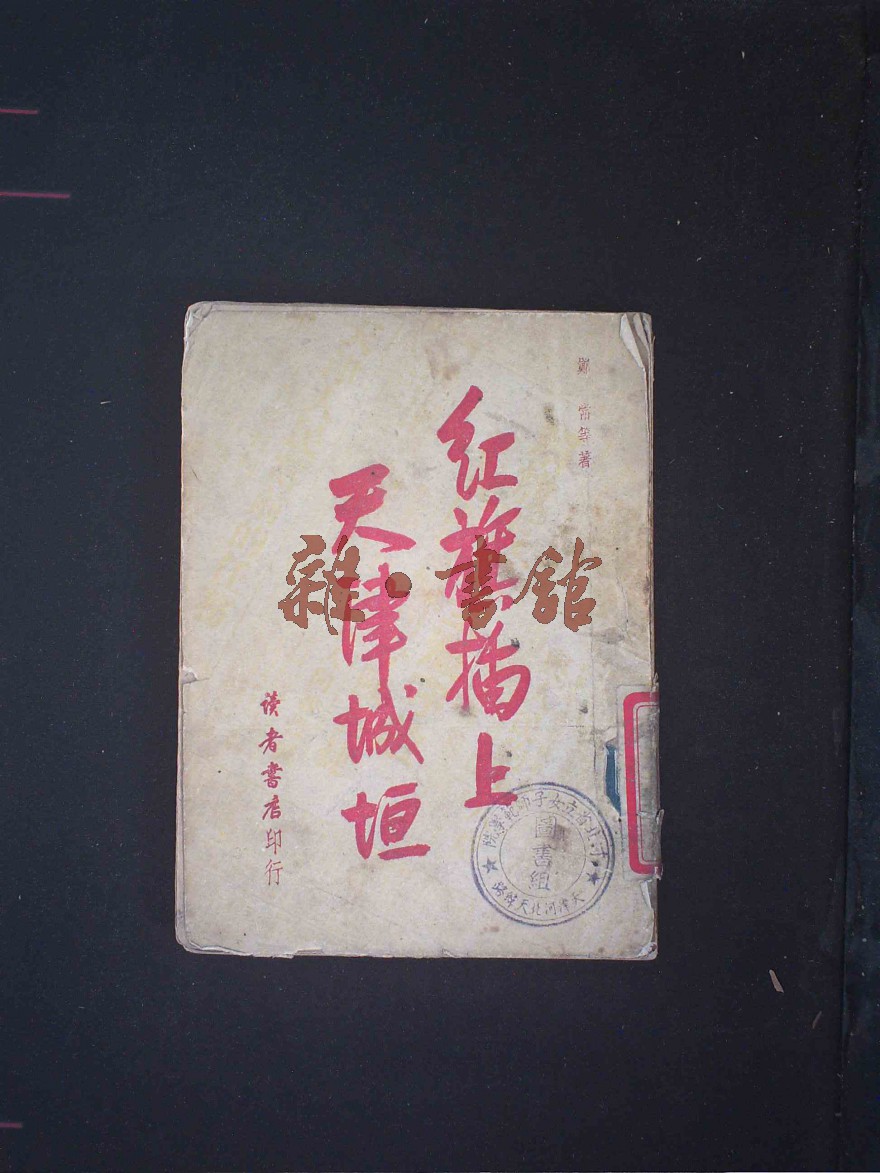 等著
红旗插上
天津城垣
读者書店印行
雜·書舘
河北省立女子師範學院
圖書組
天津河北天緯路